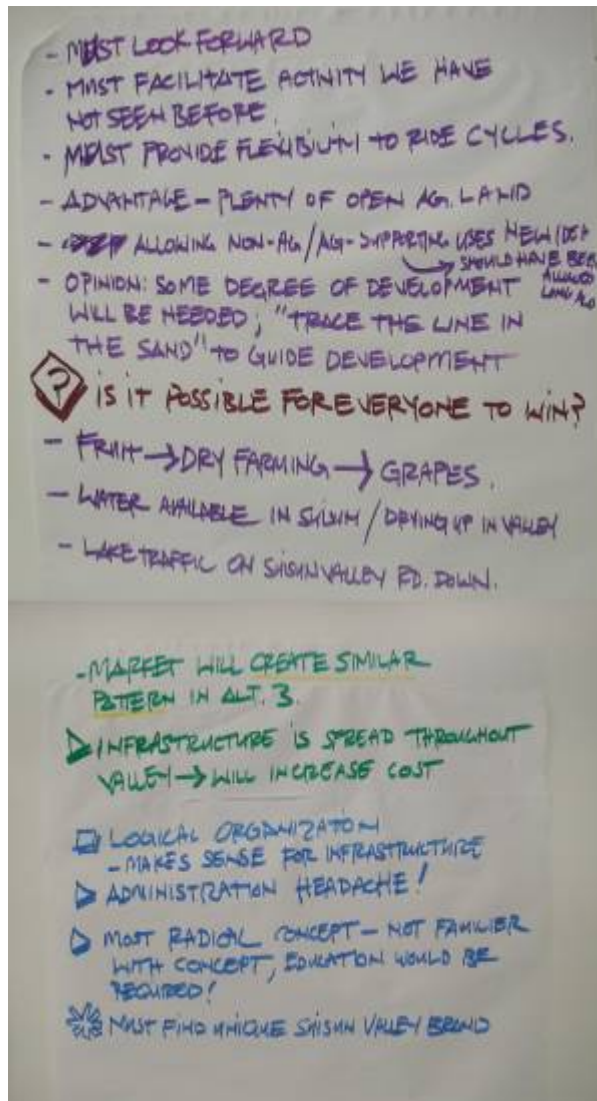 - MUST LOOK FORWARD
- MUST FACILITATE ACTIVITY WE HAVE
NOT SEEN BEFORE.
- MUST PROVIDE FLEXIBILITY TO RIDE CYCLES.
- ADVANTAGE - PLENTY OF OPEN AG. LAND
- ALLOWING NON-AG/AG-SUPPORTING USES NEW IDEA
→ SHOULD HAVE BEEN
ALLOWED
LONG AGO
- OPINION: SOME DEGREE OF DEVELOPMENT
WILL BE NEEDED; "TRACE THE LINE IN
THE SAND" TO GUIDE DEVELOPMENT
? IS IT POSSIBLE FOR EVERYONE TO WIN?
- FRUIT → DRY FARMING → GRAPES.
- WATER AVAILABLE IN SUISUN / DRYING UP IN VALLEY
- LAKE TRAFFIC ON SUISUN VALLEY RD. DOWN.
- MARKET WILL CREATE SIMILAR
PATTERN IN ALT. 3.
▷ INFRASTRUCTURE IS SPREAD THROUGHOUT
VALLEY → WILL INCREASE COST
LOGICAL ORGANIZATON
- MAKES SENSE FOR INFRASTRUCTURE
▷ ADMINISTRATION HEADACHE!
▷ MOST RADICAL CONCEPT - NOT FAMILIER
WITH CONCEPT, EDUCATION WOULD BE
REQUIRED!
MUST FIND UNIQUE SUISUN VALLEY BRAND